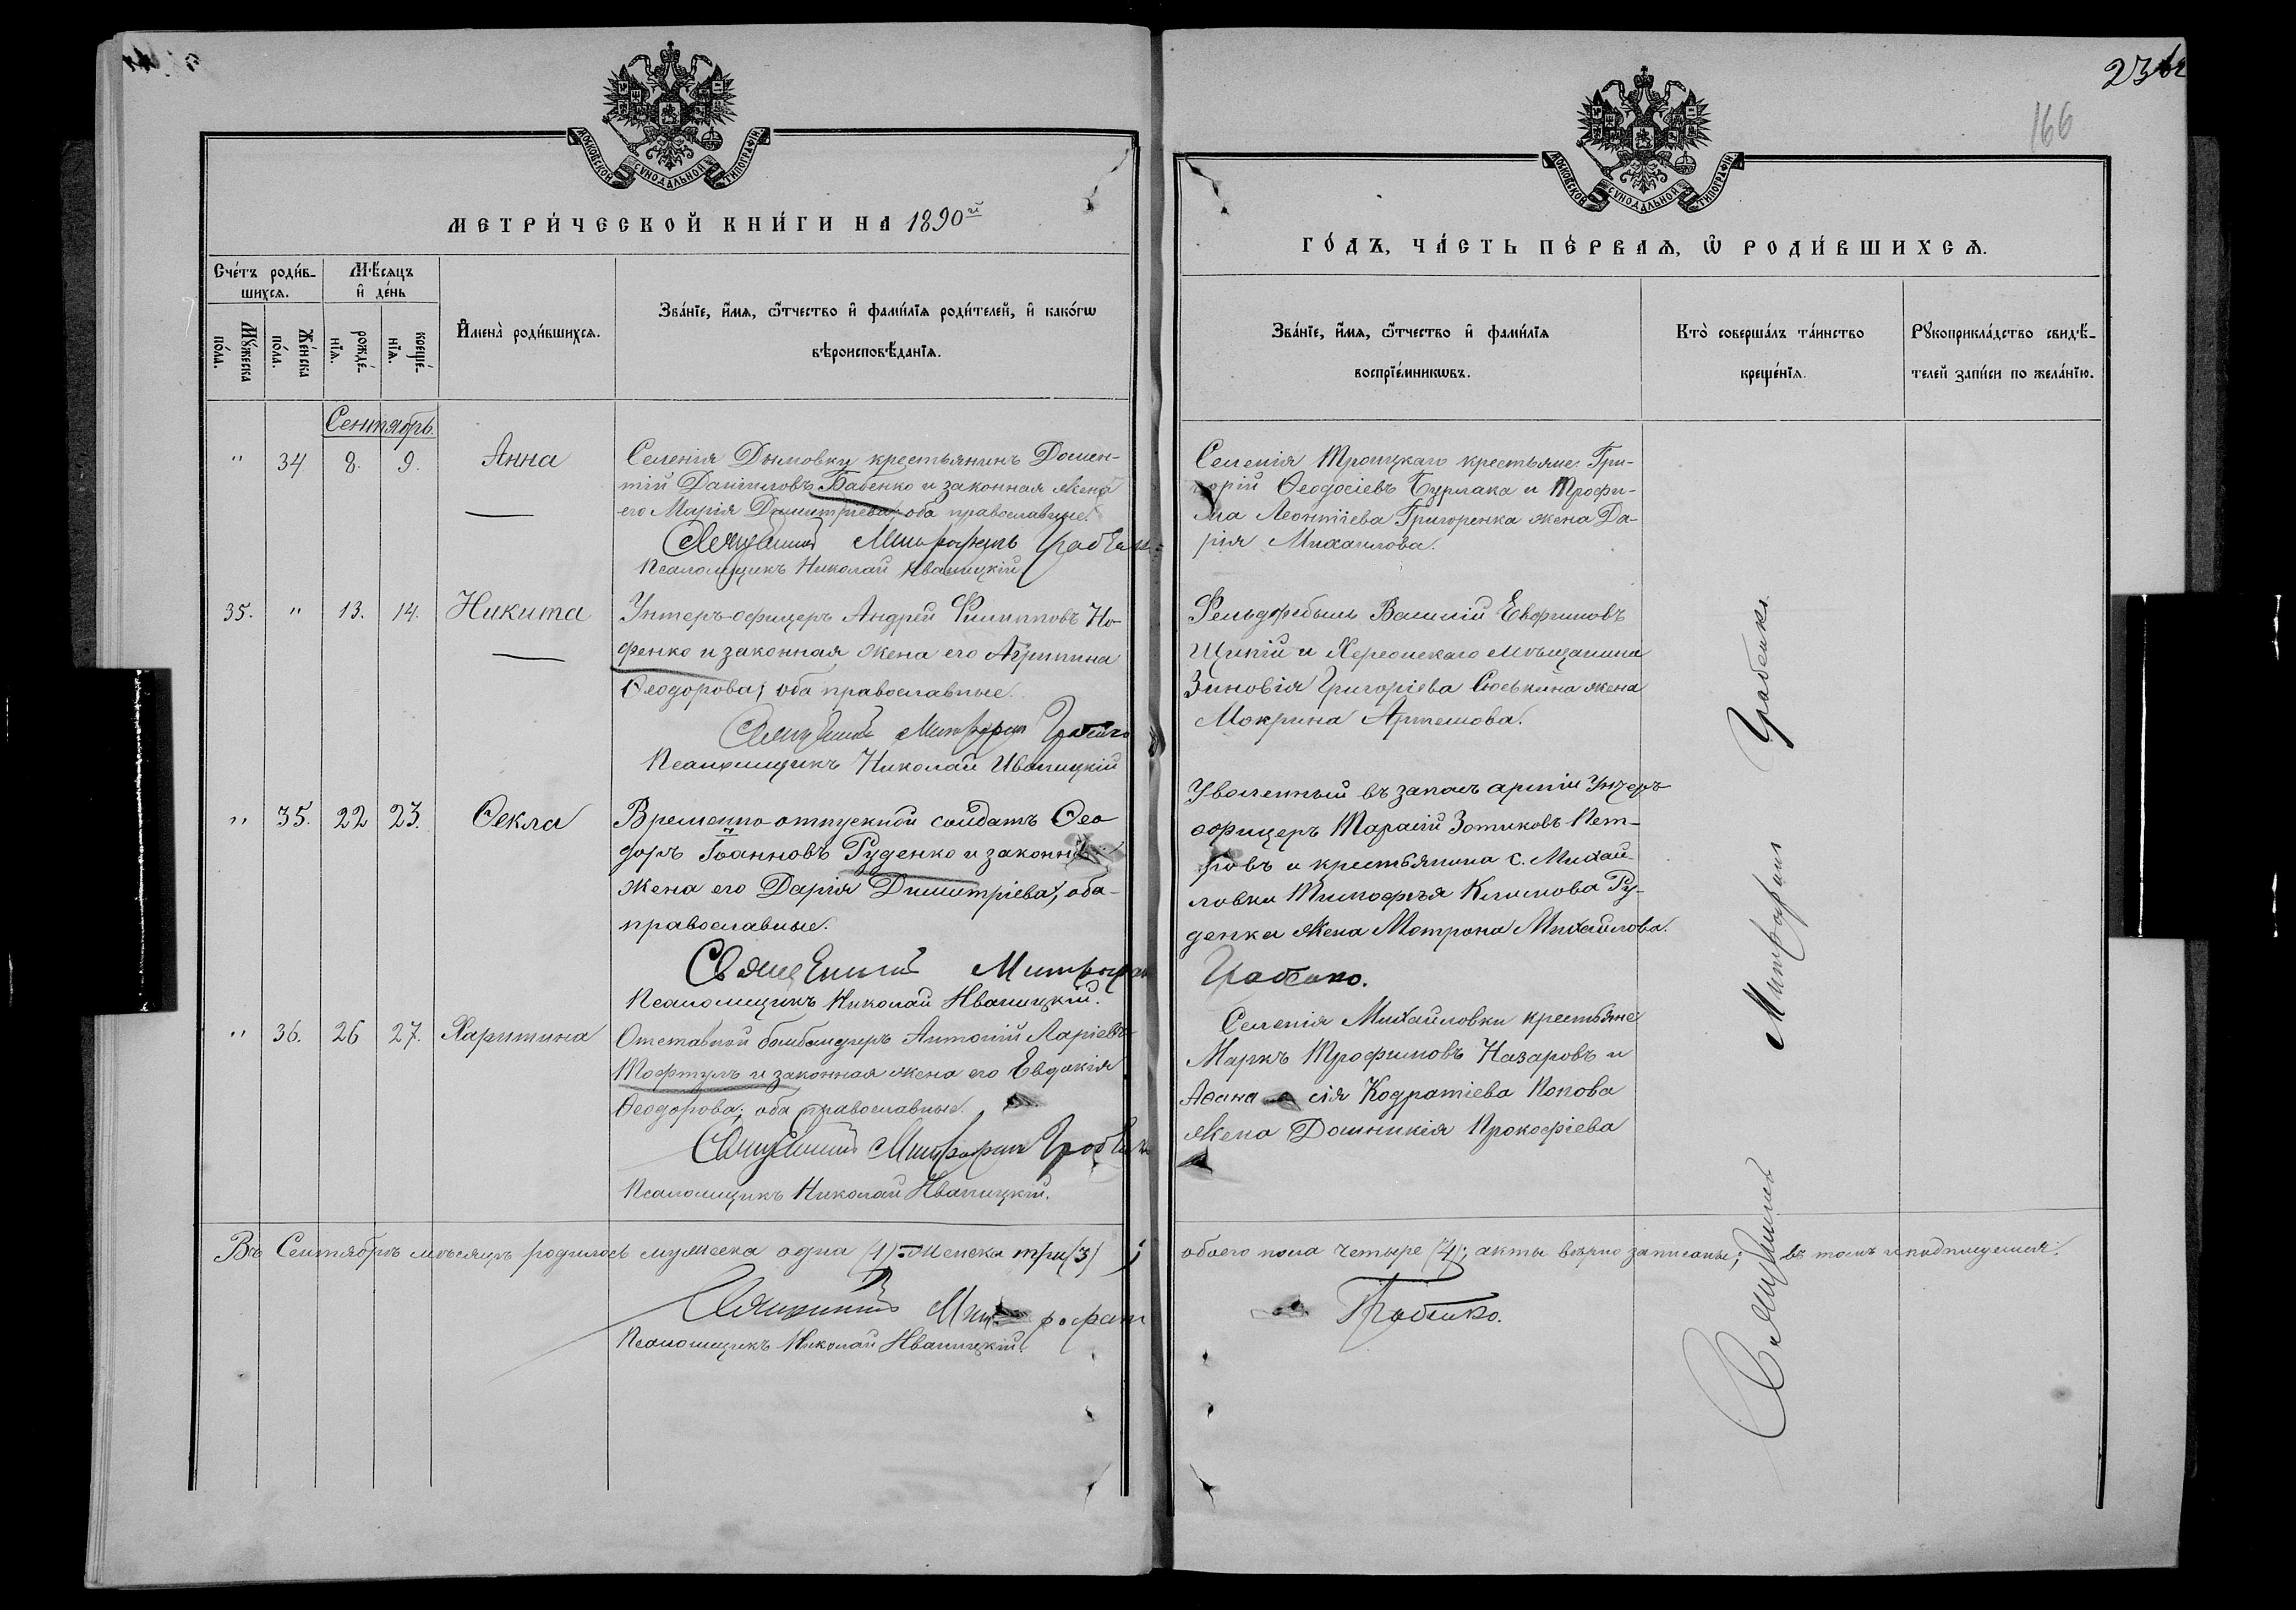 МОСКОВСКОЙ СѴНОДАЛЬНОЙ ТИПОГРАФІИ
МЕТРИ́ЧЕСКОЙ КНИ́ГИ НА 1890й
Сче́тъ роди́в-
шихсѧ.
Мѣ́сѧцъ
и҆ де́нь
Мꙋ́жеска
по́ла.
Же́нска
по́ла.
рожде́-
нїѧ.
креще́-
нїѧ.
И҆мена̀ роди́вшихсѧ.
Зва́нїе, и҆́мѧ, ѻ҆́тчество и҆ фами́лїѧ роди́телей, и҆ како́гѡ
вѣроисповѣ́данїѧ.
Сентябрь.
" 34 8. 9. Анна
Селенія Дымовки крестьянинъ Домен-
тій Даниловъ Бабенко и законная жена
его Марія Димитріева оба православные.
Священникъ Митрофанъ
Псаломщикъ Николай Иваницкій
35. " 13. 14. Никита
Унтеръ-офицеръ Андрей Филипповъ Но-
фенко и законная жена его Агрипина
Ѳеодорова; оба православные.
Священникъ Митрофанъ
Псаломщикъ Николай Иваницкій
" 35. 22 23. Ѳекла
Временно-отпускной солдатъ Ѳео
доръ Іоанновъ Руденко и законная
жена его Дарія Димитріева, оба-
православные.
Священникъ Митрофан
Псаломщикъ Николай Иваницкій.
" 36. 26 27. Харитина
Отставной бомбандиръ Антоній Ларіевъ
и законная жена его Евдокія
Ѳеодорова; оба православные.
Священникъ Митрофан
Псаломщикъ Николай Иваницкій.
Въ Сентябрѣ мѣсяцѣ родилось мужеска одна (1) женска три (3)
Священникъ Митрофан
Псаломщикъ Николай Иваницкій.
236
166
МОСКОВСКОЙ СѴНОДАЛЬНОЙ ТИПОГРАФІИ
ГО́ДЪ, ЧА́СТЬ ПЕ́РВАѦ, Ѡ҆ РОДИ́ВШИХСѦ.
Зва́нїе, и҆́мѧ, ѻ҆́тчество и҆ фами́лїѧ
воспрїе́мникѡвъ.
Кто̀ соверша́лъ та́инство
креще́нїѧ.
Рꙋкоприкла́дство свидѣ́-
телей за́писи по жела́нїю.
Селенія Троицкаго крестьяне Гри-
горій Ѳеодосіевъ Бурлака и Трофи-
ма Леонтіева Григоренка жена Да-
рія Михаилова.
Фельдфебель Василій Евфимовъ
и Херсонскаго мѣщанина
Зиновія Григоріева жена
Мокрина Артемова.
Уволенный въ запасъ арміи Унтеръ
офицеръ Тарасій Зотиковъ Пет-
ровъ и крестьянина с. Михай-
ловки Тимофѣя Климова Ру-
денка жена Мотрона Михайлова.
Грабенко.
Селенія Михайловки крестьяне
Маркъ Трофимовъ Назаровъ и
Аѳана сія Кодратіева Попова
жена Домникія Прокофіева
обоего пола четыре (4); акты вѣрно записаны; въ томъ и подпишемся:
Грабенко.
Священникъ Митрофанъ Грабенко